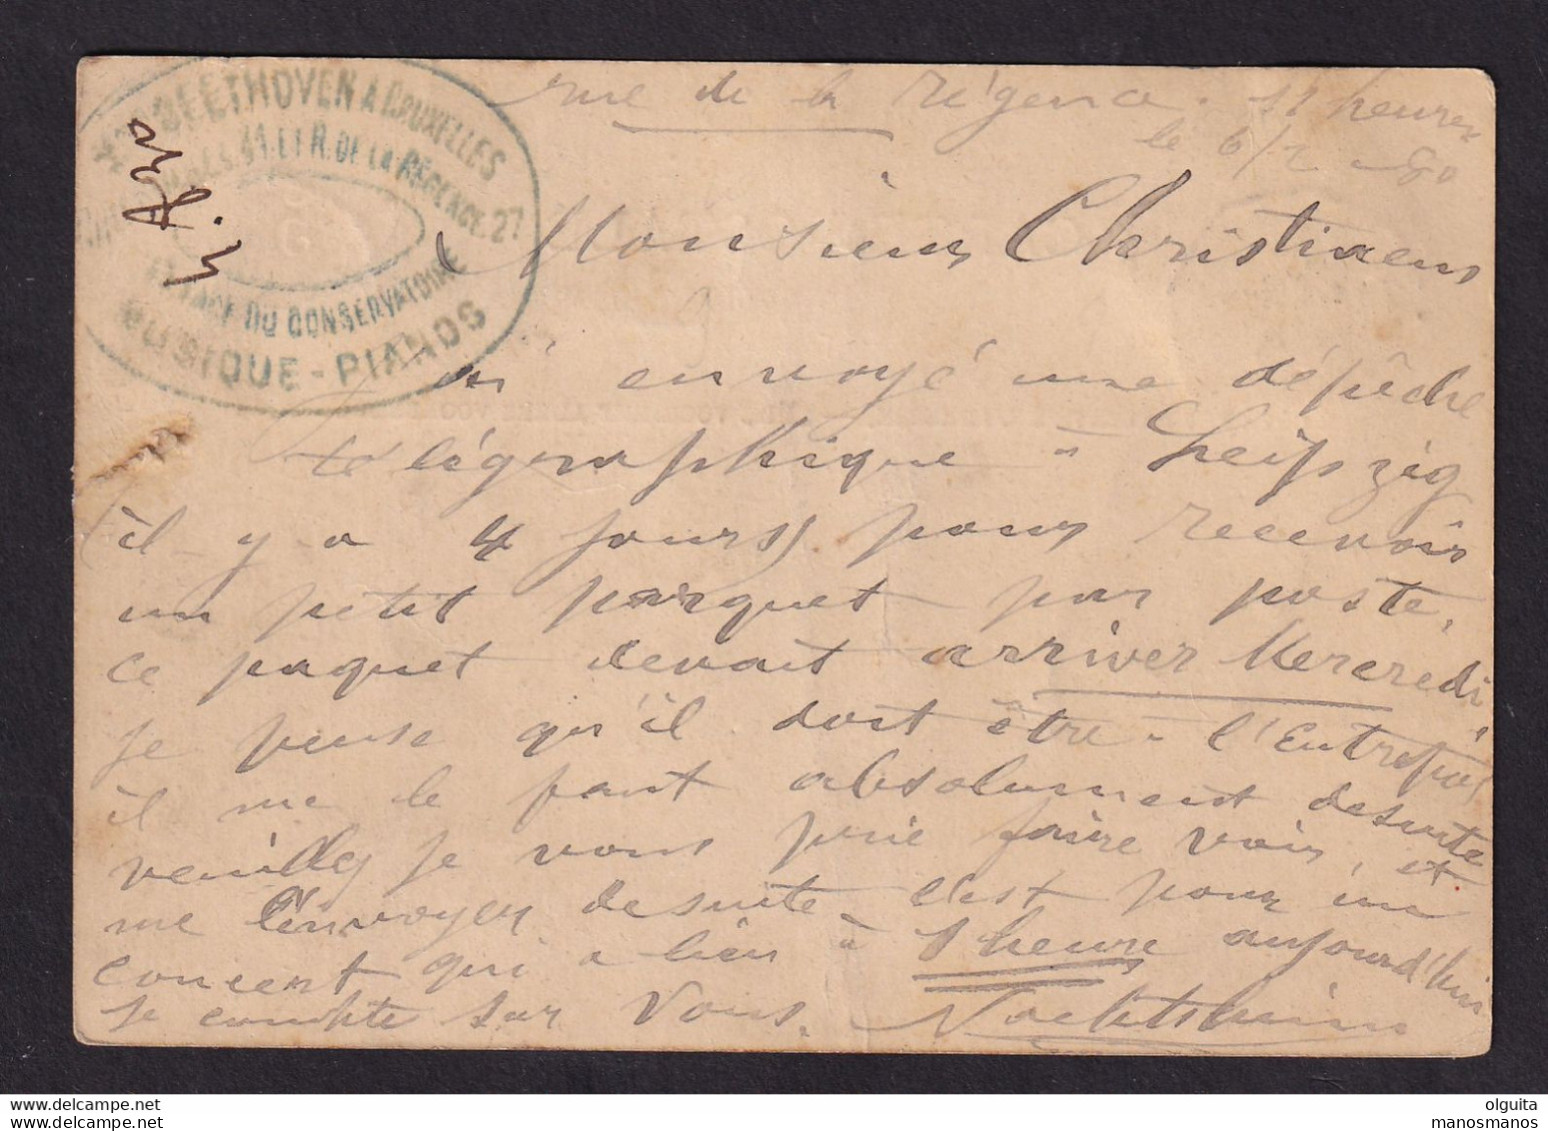 BEETHOVEN A BRUXELLES
41. ET R. DE LA RÉGENCE. 27
EN FACE DU CONSERVATOIRE
MUSIQUE - PIANOS
rue de la régence. 11 heures
le 6/2 - 80
Monsieur Christiaens
J'ai envoyé une dépêche
télégraphique à Leipzig
(il-y-a 4 jours) pour recevoir
un petit parquet par poste,
ce paquet devait arriver Mercredi
je pense qu'il doit être à l'Entrepôt
il me le faut absolument desuite
veuillez je vous prie faire voir, et
me l'envoyer desuite. c'est pour un
concert qui a lieu à 1 heure aujourd'hui
je compte sur Vous.
olguita
manosmanos